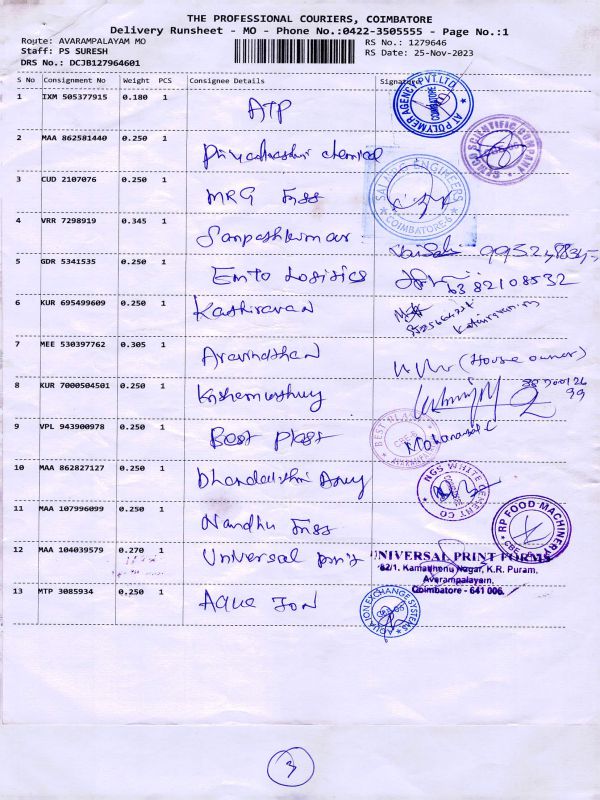 THE PROFESSIONAL COURIERS, COIMBATORE
Delivery Runsheet - MO - Phone No.:0422-3505555 - Page No.:1
Route: AVARAMPALAYAM MO
RS No.: 1279646
Staff: PS SURESH
RS Date: 25-Nov-2023
DRS No.: DCJB127964601
S No Consignment No Weight PCS Consignee Details Signature
1 IXM 505377915 0.180 1 ATP
AT POLYMER AGENCY PVT.LTD.
COIMBATORE
2 MAA 862581440 0.250 1 chemical
SCIENTIFIC COMPANY
3 CUD 2107076 0.250 1 MRG
SAI ENGINEERS
COIMBATORE-6
4 VRR 7298919 0.345 1 Sanpathkumar
5 GDR 5341535 0.250 1 Emto Logistics
6382108532
6 KUR 695499609 0.250 1 Kathiravan
7 MEE 530397762 0.305 1 Aravindhan (House owner)
8 KUR 7000504501 0.250 1 Krishnamurthy
9 VPL 943900978 0.250 1 Best Plast
BEST PLAST
10 MAA 862827127 0.250 1
NGS WHITE CEMENT CO
11 MAA 107996099 0.250 1 Nandhu
RP FOOD MACHINERY
12 MAA 104039579 0.270 1 Universal
UNIVERSAL PRINT FORMS
82/1. Kamathenu Nagar, K.R. Puram,
Avarampalayam,
Coimbatore - 641 006.
13 MTP 3085934 0.250 1 Aqua Ion
AQUA ION EXCHANGE SYSTEMS
3